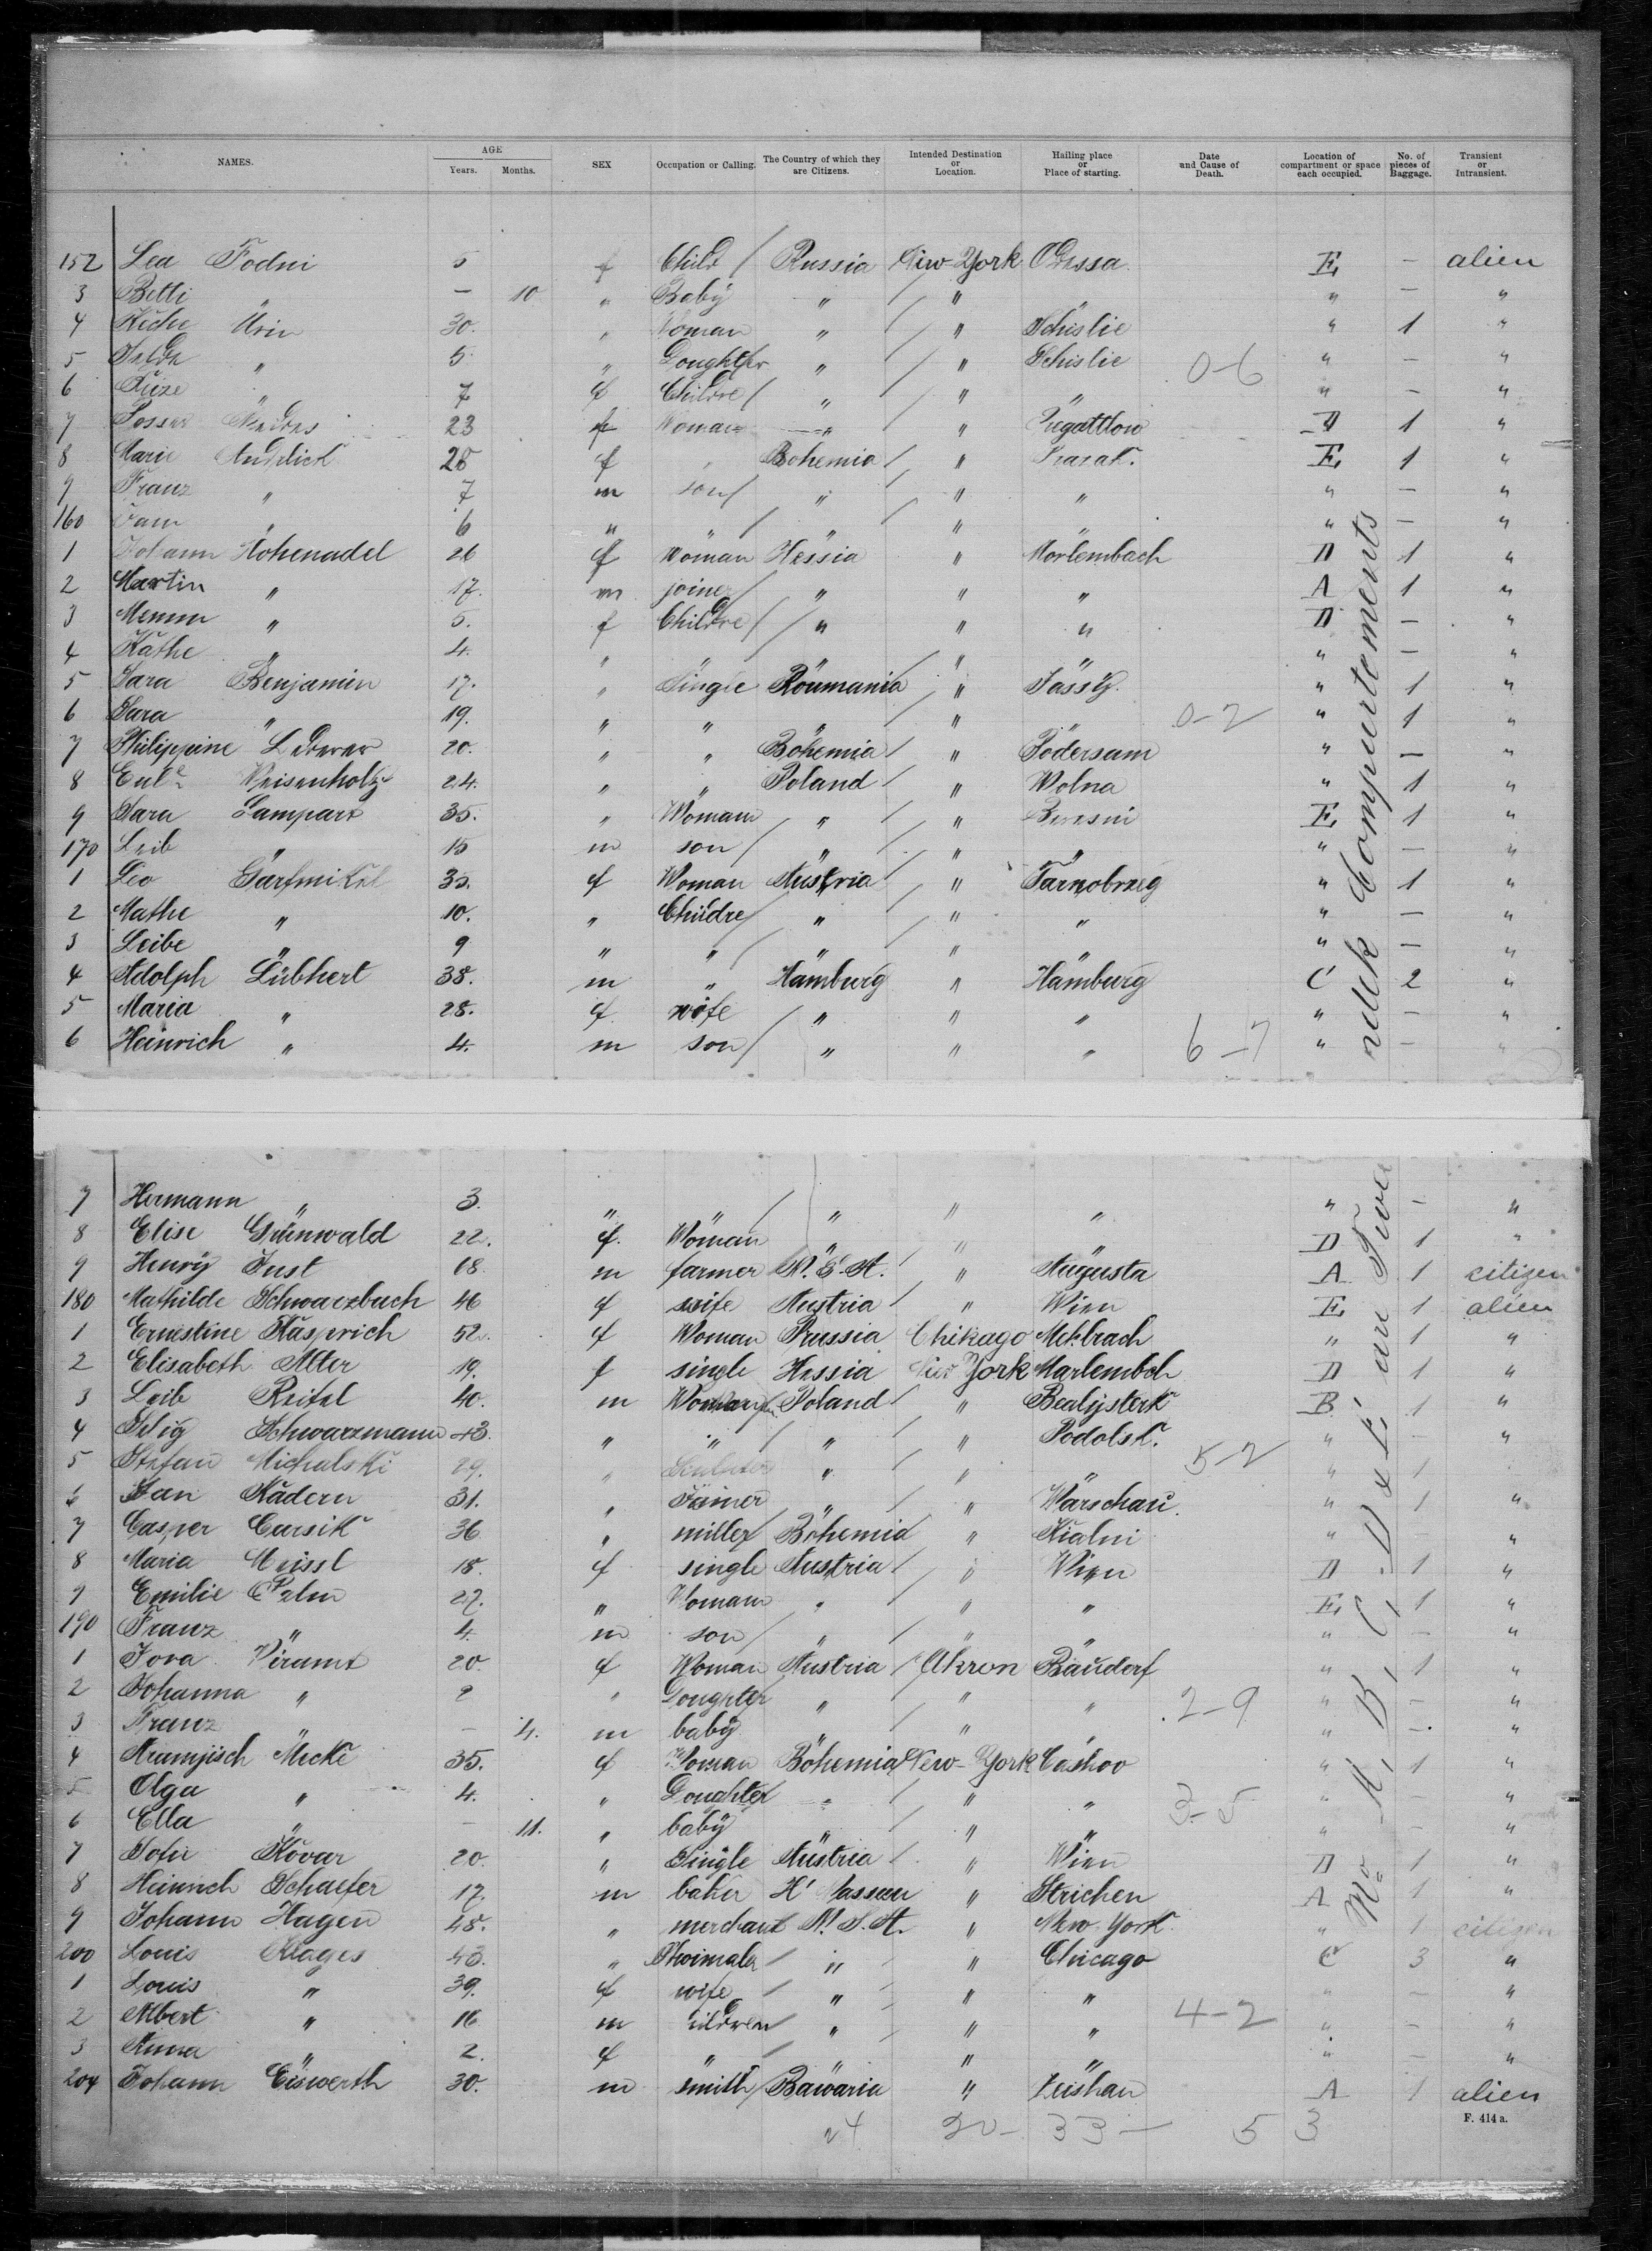 NAMES. AGE Years. Months. SEX Occupation or Calling. The Country of which they are Citizens. Intended Destination or Location. Hailing place or Place of starting. Date and Cause of Death. Location of compartment or space each occupied. No. of pieces of Baggage. Transient or Intransient.
152 Lea Fodni 5 f Child / Russia New-York Odessa E - alien
3 Betti " - 10 " Baby " / " " - "
4 Urin 30. " Woman " / " Schislie " 1 "
5 " 5 " Doughter " / " Schislie 0-6 " - "
6 " 7 f Childre / " / " " " - "
7 23 f Woman " " D 1 "
8 Marie 28 f " Bohemia / " E 1 "
9 Franz " 7 m son / " / " " " - "
160 " 6 " " / " / " " " - "
1 Johann Hohenadel 26 f Woman Hessia " Morlembach D 1 "
2 Martin " 17. m joiner / " " " A 1 "
3 " 5. f Childre / / " " " D - "
4 Käthe " 4. " " " / " " " - "
5 Sara Benjamin 17. " Single Roumania / " Jassy. " 1 "
6 Sara " 19. " " " / " " 0-2 " 1 "
7 Philippine 20. " " Bohemia / " Födersam " - "
8 24. " " Poland / " Wolna " 1 "
9 Sara Lampart 35. " Womann / " / " E 1 "
170 Leib " 15 m son / " / " " " - "
1 Leo 35. f Woman Austria / " Tarnobrzeg " 1 "
2 Mathe " 10. " Childre / " / " " " - "
3 Leibe " 9 " " / " / " " " - "
4 Adolph Lübhert 38. m " Hamburg " Hamburg C 2 "
5 Maria " 28. f wife " " " " - "
6 Heinrich " 4. m son / " " " 6-7 " - "
7 Hermann " 3. " " / " " " " - "
8 Elise Grünwald 22. f. Woman " " " D 1 "
9 Henry Just 68 m farmer U.S.A. " Augusta A 1 citizen
180 Mathilde Schwarzbach 46 f wife Austria / " Wien E 1 alien
1 Ernestine Kasprich 52. f Woman Prussia Chikago " 1 "
2 Elisabeth Alter 19. f single Hessia New York Marlembch D 1 "
3 Leib 40. m Poland / " Bealysterk B 1 "
4 Selig Schwarzmann 43. " " / " / " Podolsk. " - "
5 Stefan Michalski 29. " " / " 5-2 " 1
6 Jan Kadern 31. " " / " Warschau. " 1 "
7 Casper Carsik 36 " miller / Bohemia " Kialni " "
8 Maria Meissl 18. f single Austria / " Wien D 1 "
9 Emilie Palm 27. " Womann " / " " E 1 "
190 Franz " 4. m son / " / " " " - "
1 20. f Woman Austria / Akron Baudorf " 1 "
2 Johanna " 2 " Doughter " / " " 2-9 " - "
3 Franz - 4. m baby " / " " " - "
4 35. f Woman Bohemia New-York Cashoo " 1 "
5 Olga " 4. " Doughter " / " " 3-5 " - "
6 Ella " - 11. " baby " / " " " - "
7 Sofie Kovar 20. " Single Austria / " Wien D 1 "
8 Heinrich Schaefer 17. m baker H' Nassau " Strichen A 1 "
9 Johann Hagen 48. " merchant U.S.A. " New York " 1 citizen
200 Louis Klages 43. " / " " Chicago C 3 "
1 Louis " 39. f wife / " / " " " - "
2 Albert " 16 m " / " " 4-2 " - "
3 Anna " 2. f " / " " " - "
204 Johann Eiswerth 30. m smith / Bawaria " A 1 alien
20- 33- 53
F. 414a.
No A, B, C, D & E are Tween deck Compartements